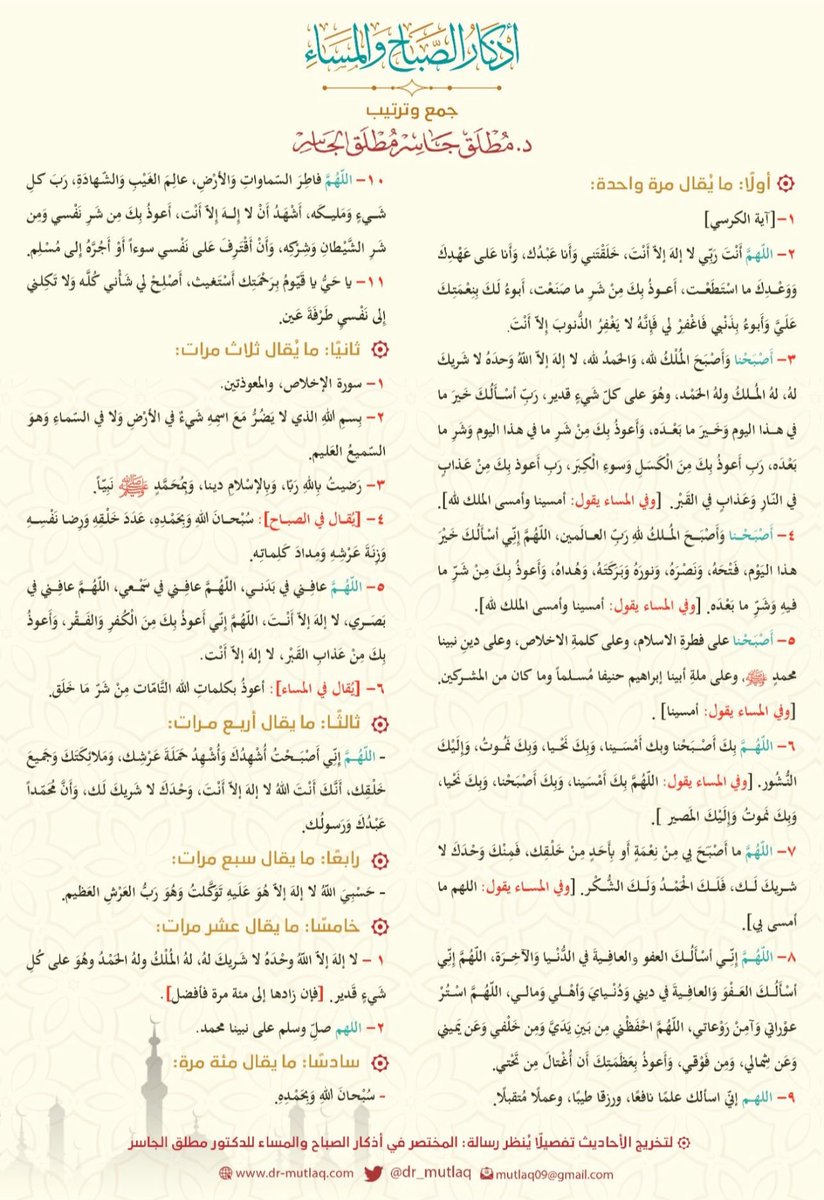 أذكار الصَّبَاحِ وَالمَسَاءِ
جمع وترتيب
د. مُطْلَق جَاسِر مُطْلَق الجَاسِر
أولًا: ما يُقال مرة واحدة:
١- [آية الكرسي]
٢- اللّهمَّ أَنْتَ رَبِّي لا إلهَ إلاّ أَنْتَ، خَلَقْتَني وَأَنا عَبْدُك، وَأَنا عَلى عَهْدِكَ
وَوَعْدِكَ ما اسْتَطَعْت، أَعوذُ بِكَ مِنْ شَرِ ما صَنَعْت، أَبوءُ لَكَ بِنِعْمَتِكَ
عَلَيَّ وَأَبوءُ بِذَنْبي فَاغْفرْ لي فَإِنَّهُ لا يَغْفِرُ الذُّنوبَ إِلاّ أَنْتَ.
٣- أَصْبَحْنا وَأَصْبَحَ المُلْكُ لله، وَالحَمدُ لله، لا إلهَ إلاّ اللّهُ وَحدَهُ لا شَريكَ
لهُ، لهُ المُلكُ ولهُ الحَمْد، وهُوَ على كلّ شَيءٍ قدير، رَبِّ أسْأَلُكَ خَيرَ ما
في هذا اليوم وَخَيرَ ما بَعْدَه، وَأَعوذُ بِكَ مِنْ شَرِ ما في هذا اليوم وَشَرِ ما
بَعْدَه، رَبِ أَعوذُ بِكَ مِنَ الْكَسَلِ وَسوءِ الْكِبَر، رَبِ أَعوذ بِكَ مِنْ عَذابٍ
في النّارِ وَعَذابٍ في القَبْر. [وفي المساء يقول: أمسينا وأمسى الملك لله].
٤- أَصْبَحْنا وَأَصْبَحَ المُلكُ للهِ رَبِّ العالَمين، اللّهُمَّ إِنِّي أسْأَلُكَ خَيْرَ
هذا اليَوْم، فَتْحَهُ، وَنَصْرَهُ، وَنورَهُ وَبَرَكَتَهُ، وَهُداهُ، وَأَعوذُ بِكَ مِنْ شَرِّ ما
فيهِ وَشَرِّ ما بَعْدَه. [وفي المساء يقول: أمسينا وأمسى الملك لله].
٥- أَصْبَحْنا على فطرةِ الاسلام، وعلى كلمةِ الاخلاص، وعلى دينِ نبينا
محمدٍ ﷺ، وعلى ملةِ أبينا إبراهيم حنيفا مُسلماً وما كان من المشركين.
[وفي المساء يقول: أمسينا] .
٦- اللّهُمَّ بِكَ أَصْبَحْنا وبك أمْسَينا، وبِكَ نَحْيا، وَبِكَ نَمُوتُ، وَإِلَيْكَ
النُّشُور. [وفي المساء يقول: اللّهُمَّ بِكَ أَمْسَينا، وَبِكَ أَصْبَحْنا، وَبِكَ نَحْيا،
وَبِكَ نَموتُ وَإِلَيْكَ المَصير ].
٧- اللّهُمَّ ما أَصْبَحَ بي مِنْ نِعْمَةٍ أَو بِأَحَدٍ مِنْ خَلْقِك، فَمِنْكَ وَحْدَكَ لا
شريكَ لَك، فَلَكَ الْحَمْدُ وَلَكَ الشُّكْر. [وفي المساء يقول: اللهم ما
أمسى بي].
٨- اللّهُمَّ إِنّي أسْأَلُكَ العفو والعافِيةَ في الدُّنْيا وَالآخِرَة، اللّهُمَّ إِنِّي
أسْأَلُكَ العَفْوَ وَالعافِيةَ في ديني وَدُنْيايَ وَأهْلي وَمالي، اللّهُمَّ اسْتُرْ
عوْراتي وَآمِنْ رَوْعاتي، اللّهُمَّ احْفَظْني مِن بَينِ يَدَيَّ وَمِن خَلْفي وَعَن يَميني
وَعَن شِمالي، وَمِن فَوْقي، وَأَعوذُ بِعَظَمَتِكَ أَن أُغْتالَ مِن تَحْتي.
٩- اللهم إنّي اسالك علمًا نافعًا، ورزقا طيبًا، وعملًا مُتقبلًا.
١٠- اللّهُمَّ فاطِرَ السّماواتِ وَالأرْضِ، عالِمَ الغَيْبِ وَالشّهادَةِ، رَبَ كلِ
شَيءٍ وَمَليكَه، أَشْهَدُ أَنْ لا إِلهَ إِلاّ أَنْت، أَعوذُ بِكَ مِن شَرِ نَفْسي وَمِن
شَرِ الشَّيْطانِ وَشِرْكِه، وَأَنْ أَقْتَرِفَ عَلى نَفْسي سوءاً أَوْ أَجُرَّهُ إِلى مُسْلِم.
١١- يا حَيُّ يا قَيّومُ بِرَحْمَتِك أَسْتَغيث، أَصْلِحْ لي شَأْني كُلَّه وَلا تَكِلني
إِلى نَفْسي طَرْفَةَ عَين.
ثانيًا: ما يُقال ثلاث مرات:
١- سورة الإخلاص، والمعوذتين.
٢- بِسمِ اللهِ الذي لا يَضُرُّ مَعَ اسمِهِ شَيءٌ في الأرْضِ وَلا في السّماءِ وَهوَ
السّميعُ العَليم.
٣- رَضيتُ بِاللهِ رَبًا، وَبِالإسْلامِ دينا، وَبِمُحَمَّدٍ ﷺ نَبِيّاً.
٤- [يُقال في الصباح]: سُبْحانَ اللهِ وَبِحَمْدِهِ، عَدَدَ خَلْقِهِ وَرِضا نَفْسِهِ
وَزِنَةَ عَرْشِهِ وَمِدادَ كَلِماتِه.
٥- اللّهُمَّ عافِني في بَدَني، اللّهُمَّ عافِني في سَمْعي، اللّهُمَّ عافِني في
بَصَري، لا إلهَ إلاّ أَنْتَ، اللّهُمَّ إِنّي أَعوذُ بِكَ مِنَ الْكُفرِ وَالفَقْر، وَأَعوذُ
بِكَ مِنْ عَذابِ القَبْر، لا إلهَ إلاّ أَنْت.
٦- [يُقال في المساء]: أعوذُ بكلماتِ الله التَّامّات مِنْ شَرّ مَا خَلَق.
ثالثًا: ما يقال أربع مرات:
- اللّهُمَّ إِنِّي أَصْبَحْتُ أُشْهِدُكَ وَأُشْهِدُ حَمَلَةَ عَرْشِك، وَمَلائِكَتَكَ وَجَميعَ
خَلْقِك، أَنَّكَ أَنْتَ اللهُ لا إلهَ إلاّ أَنْتَ، وَحْدَكَ لا شَريكَ لَك، وَأَنَّ مُحَمّداً
عَبْدُكَ وَرَسولُك.
رابعًا: ما يقال سبع مرات:
- حَسْبِيَ اللّهُ لا إلهَ إلاّ هُوَ عَلَيهِ تَوَكَّلتُ وَهُوَ رَبُّ العَرْشِ العَظيم.
خامسًا: ما يقال عشر مرات:
١ - لا إلهَ إلاّ اللّهُ وحْدَهُ لا شَريكَ لهُ، لهُ المُلْكُ ولهُ الحَمْدُ وهُوَ على كُلِ
شَيءٍ قَدير. [فإن زادها إلى مئة مرة فأفضل].
٢- اللهم صلّ وسلم على نبينا محمد.
سادسًا: ما يقال مئة مرة:
- سُبْحانَ اللهِ وَبِحَمْدِهِ.
لتخريج الأحاديث تفصيلًا يُنظر رسالة: المختصر في أذكار الصباح والمساء للدكتور مطلق الجاسر
www.dr-mutlaq.com @dr_mutlaq mutlaq09@gmail.com